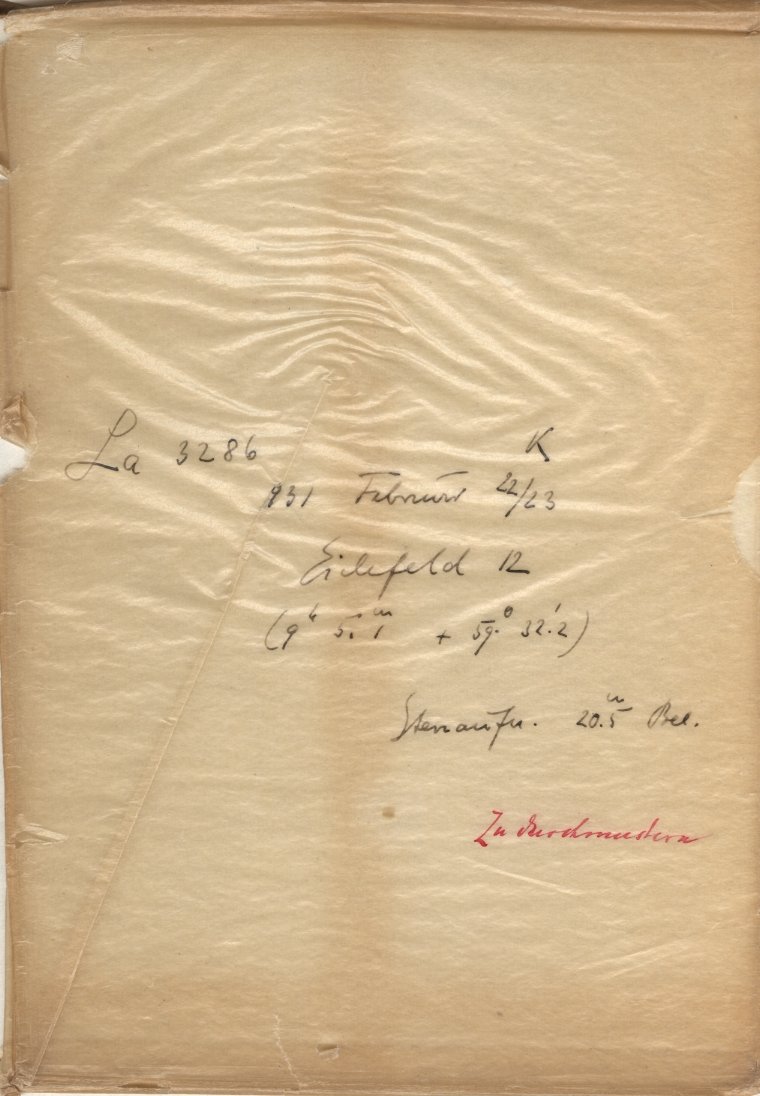 La 3286 K
931 Februar 22/23
Eichfeld 12
(9ʰ 5.ᵐ1 + 59.° 32.'2)
Sternaufn. 20.ᵐ5 Bel.
Zu durchmustern